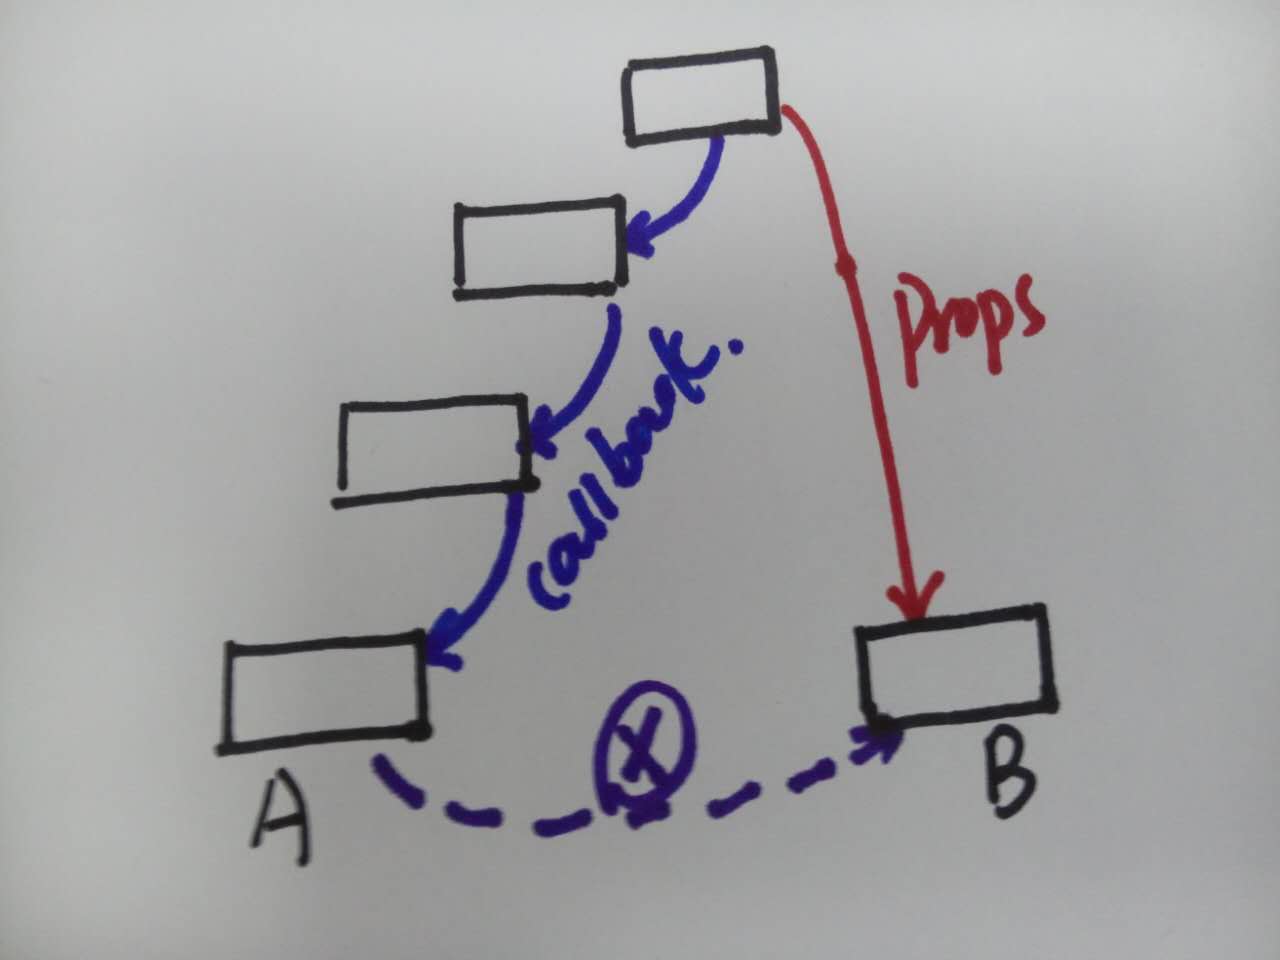 Props
callback.
X
A
B